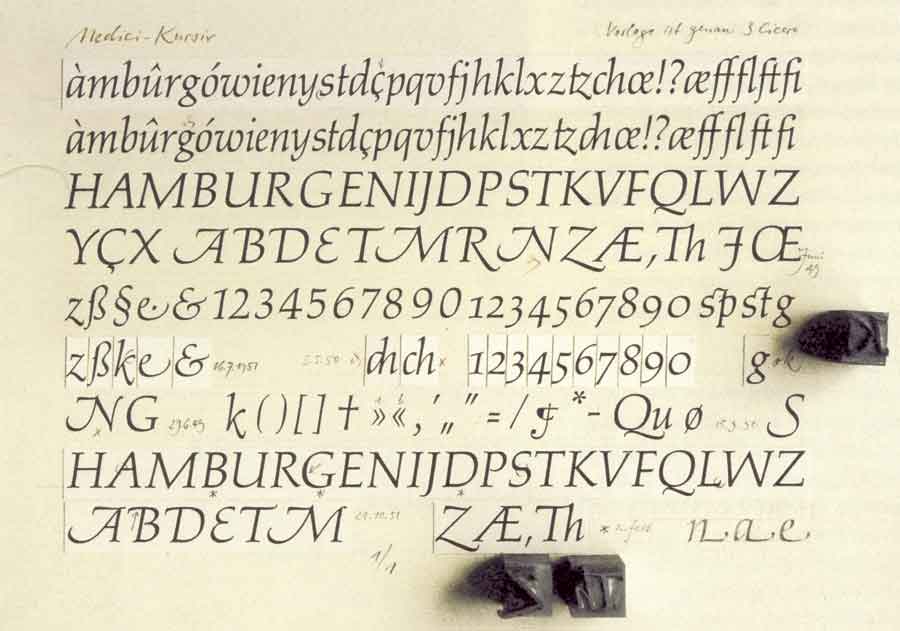 Medici-Kursiv Vorlage ist genau 3 Cicero
àmbûrgówienystdçpqvfjhklxztzchœ!?æffflftfi
àmbûrgówienystdçpqvfjhklxztzchœ!?æffflftfi
HAMBURGENIJDPSTKVFQLWZ
YÇX ABDETMRNZÆ,Th JŒ Juni 49
zß§e& 1234567890 1234567890 spstg
zßke& 16.7.1951 chch 1234567890 g
NG k()[]† »«,′„″=/ *-Quø S
HAMBURGENIJDPSTKVFQLWZ
ABDETM ZÆ,Th n a e
1/1